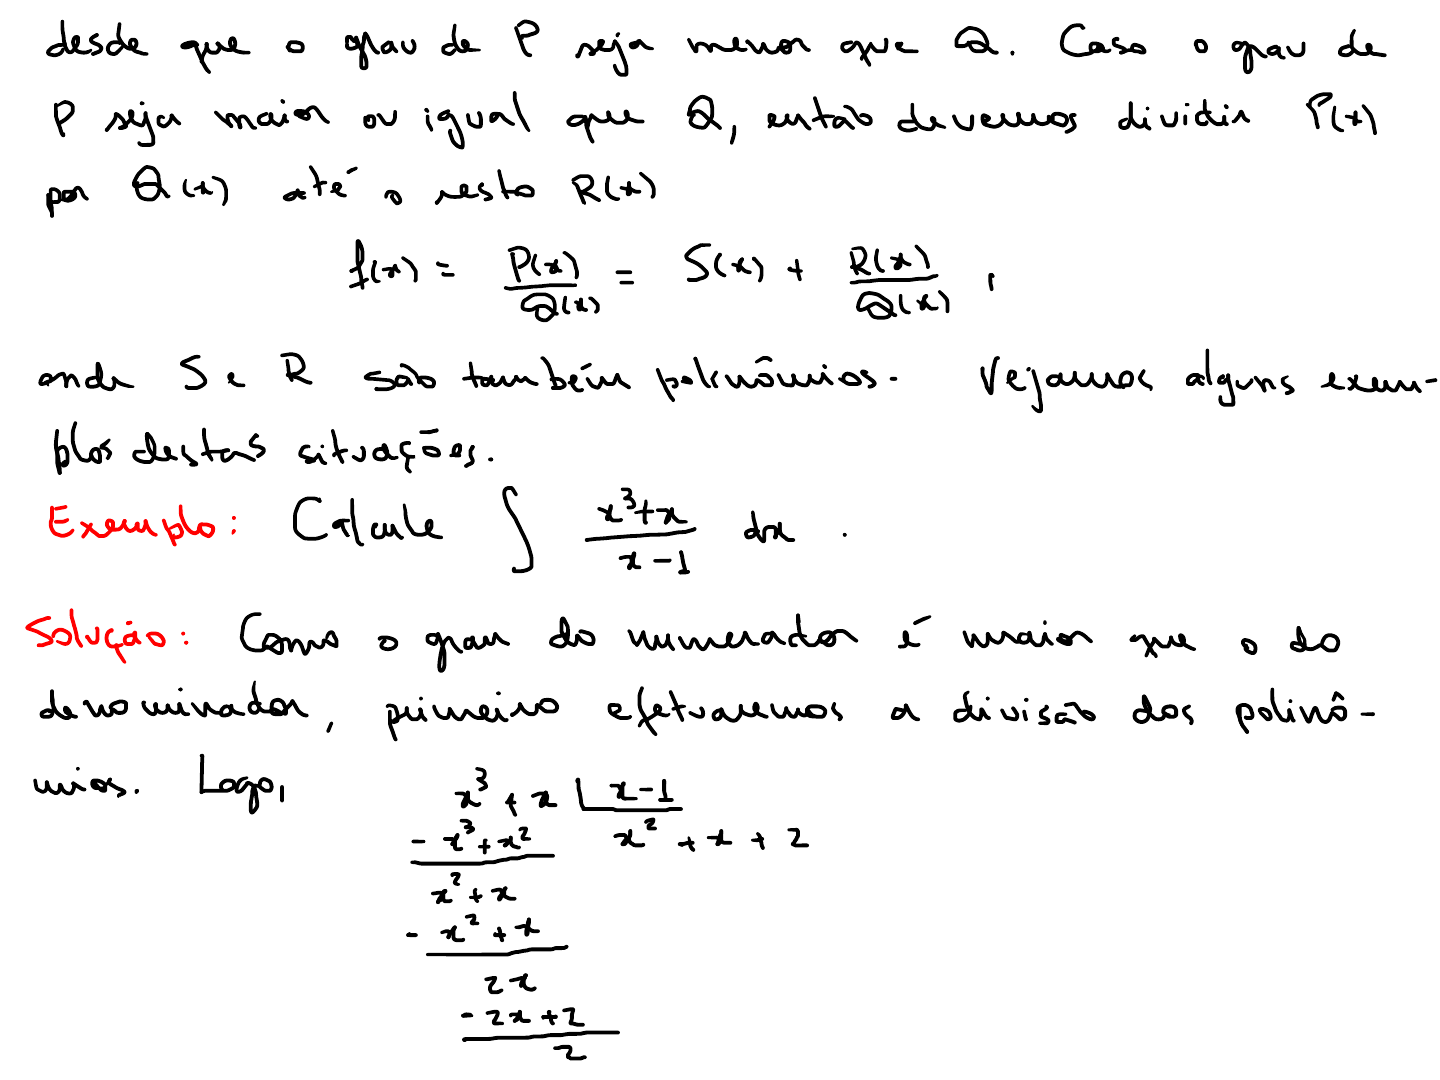 desde que o grau de P seja menor que Q. Caso o grau de
P seja maior ou igual que Q, então devemos dividir P(x)
por Q(x) até o resto R(x)
f(x) = P(x)/Q(x) = S(x) + R(x)/Q(x) ,
onde S e R são também polinômios. Vejamos alguns exem-
plos destas situações.
Exemplo: Calcule ∫ (x³+x)/(x-1) dx .
Solução: Como o grau do numerador é maior que o do
denominador, primeiro efetuaremos a divisão dos polinô-
mios. Logo,
x³ + x | x-1
- x³ + x² x² + x + 2
x² + x
- x² + x
2x
- 2x + 2
2